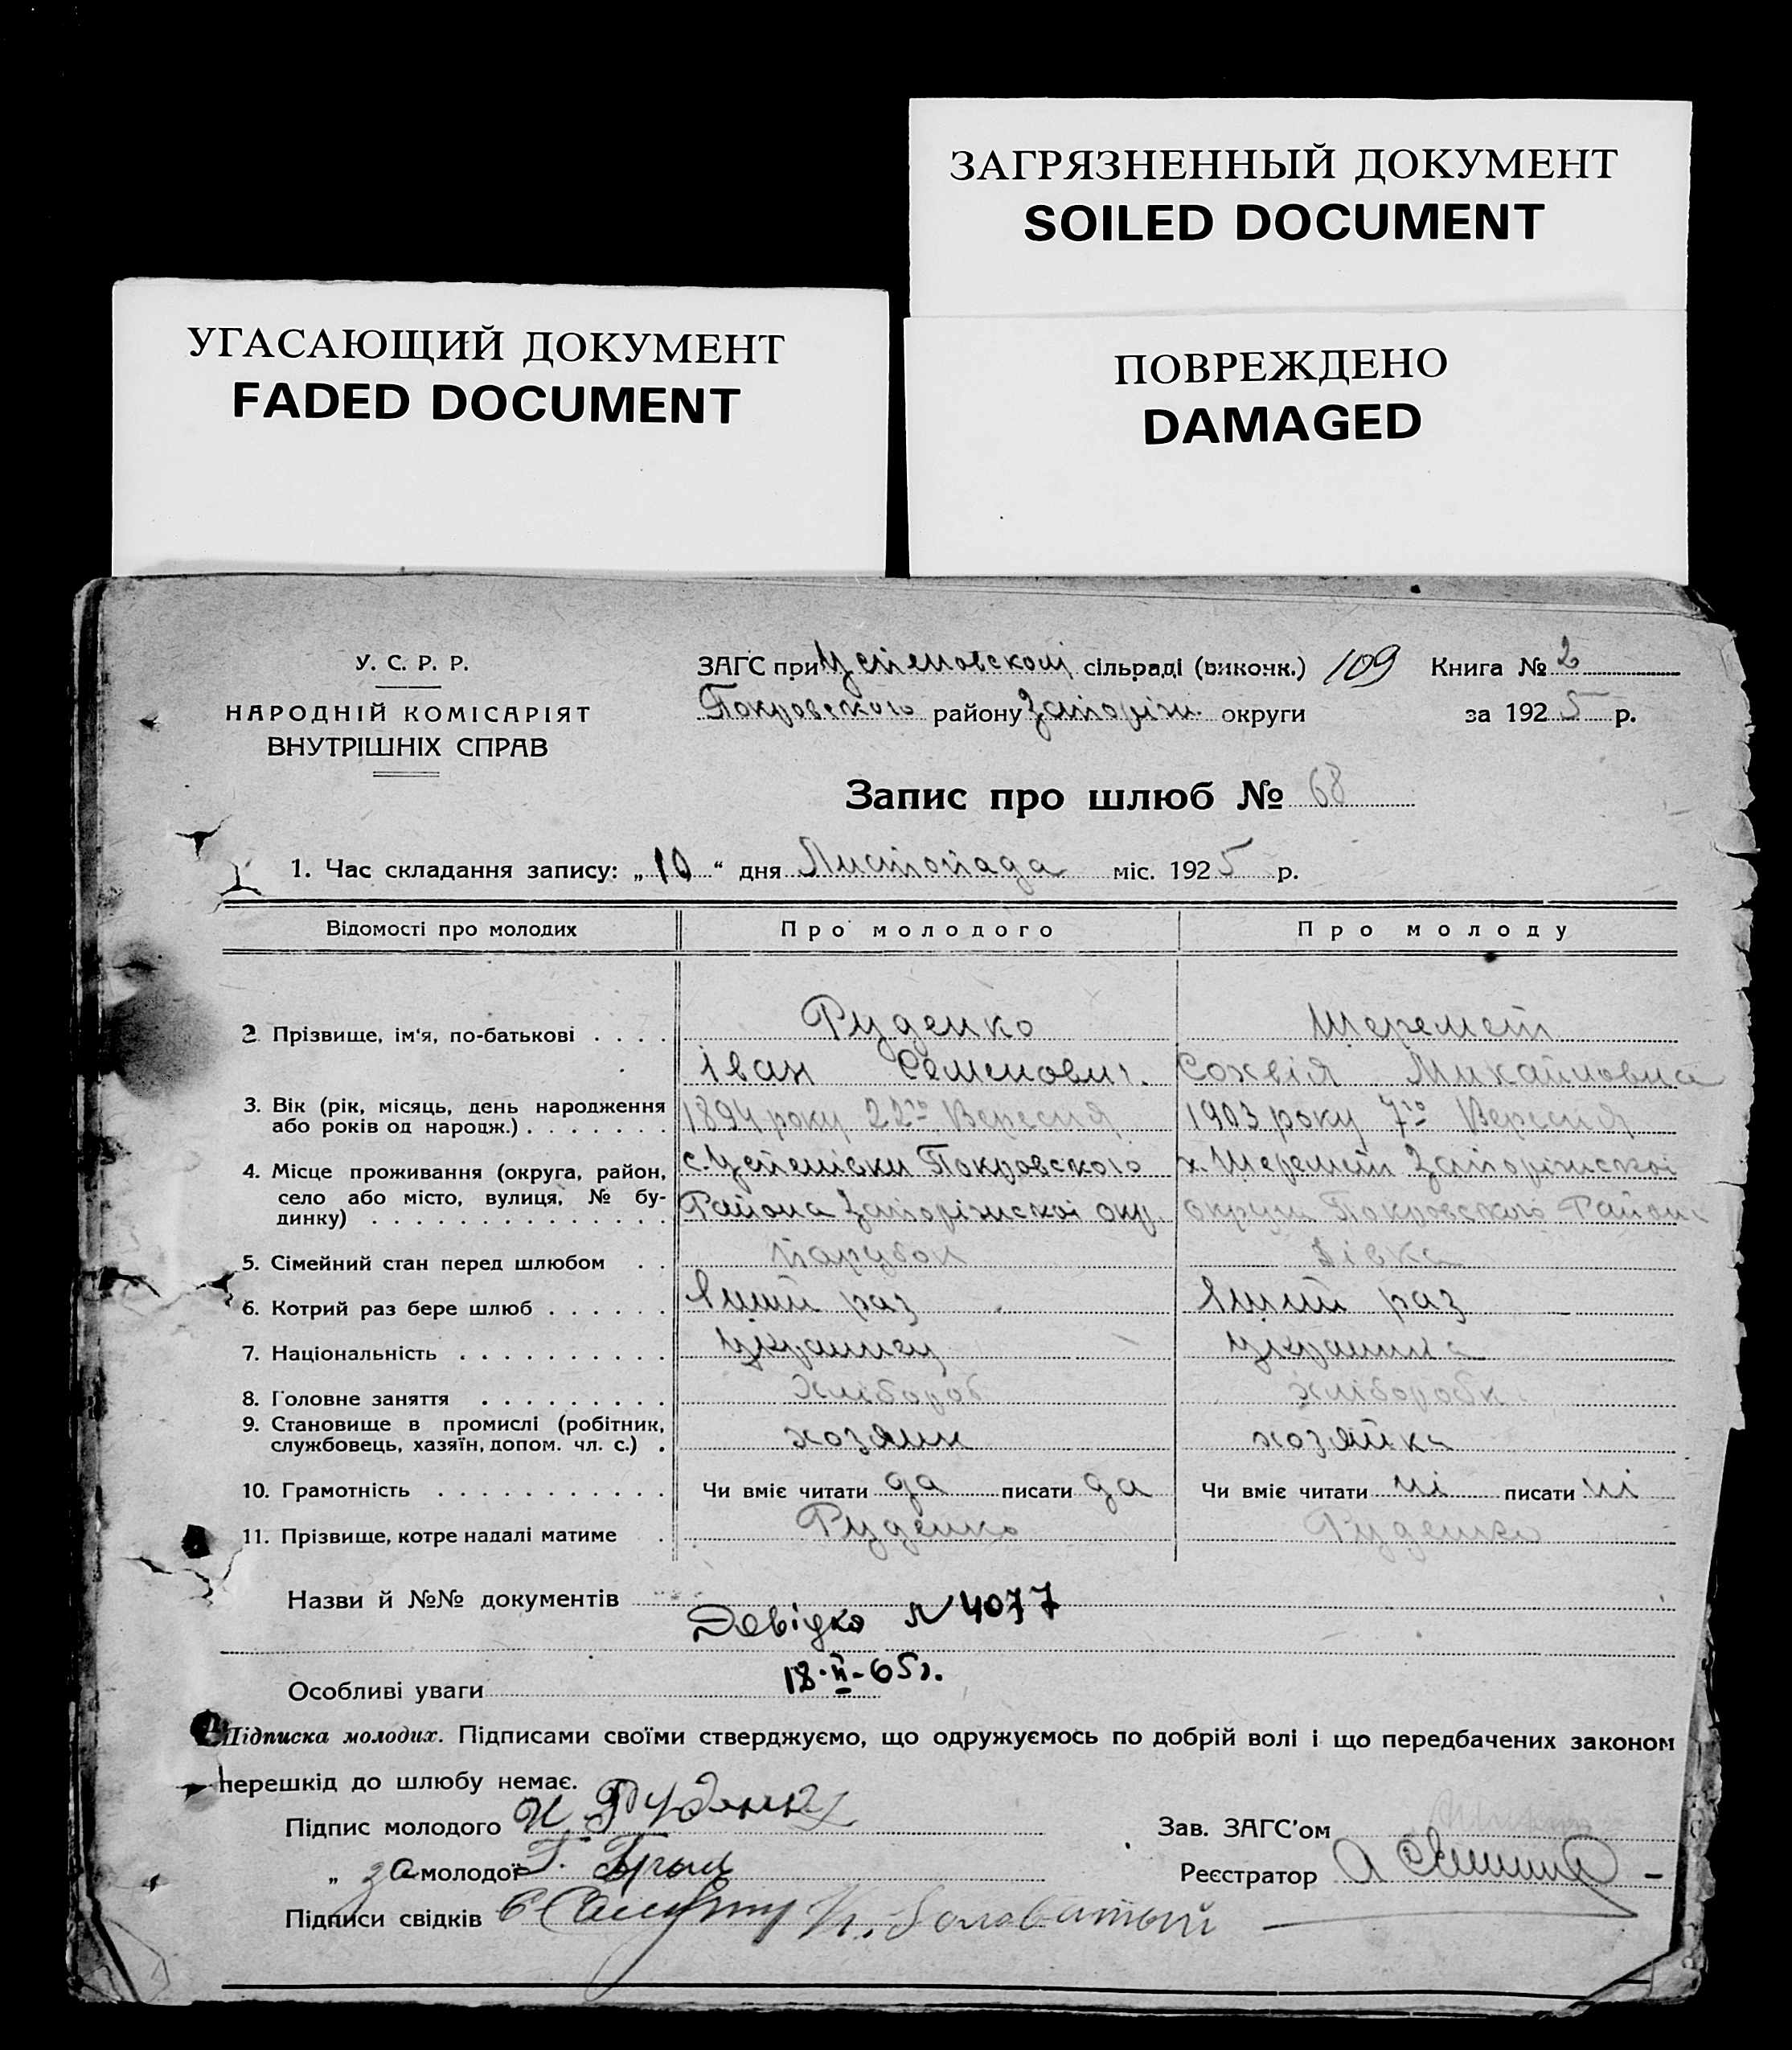 ЗАГРЯЗНЕННЫЙ ДОКУМЕНТ
SOILED DOCUMENT
УГАСАЮЩИЙ ДОКУМЕНТ
FADED DOCUMENT
ПОВРЕЖДЕНО
DAMAGED
У. С. Р. Р.
НАРОДНІЙ КОМІСАРІЯТ
ВНУТРІШНІХ СПРАВ
ЗАГС при Успеновском сільраді (виконк.) 109 Книга № 2
Покровского району Запоріж. округи за 1925 р.
Запис про шлюб № 68
1. Час складання запису: „10“ дня Листопада міс. 1925 р.
Відомості про молодих Про молодого Про молоду
2 Прізвище, ім'я, по-батькові Руденко Шеремет
Іван Семенович. Сохвія Михайловна
3. Вік (рік, місяць, день народження 1894 року 22го Вересня 1903 року 7го Вересня
або років од народж.)
4. Місце проживання (округа, район, с. Успенівки Покровского х. Шеремет Запоріжскоі
село або місто, вулиця, № бу- Района Запоріжскоі окр. округи Покровского Района
динку)
5. Сімейний стан перед шлюбом Парубок Дівка
6. Котрий раз бере шлюб 1ший раз 1ший раз
7. Національність Українец Українка
8. Головне заняття Хлібороб хліборобк
9. Становище в промислі (робітник, хозяин хозяйка
службовець, хазяїн, допом. чл. с.)
10. Грамотність Чи вміє читати да писати да Чи вміє читати ні писати ні
11. Прізвище, котре надалі матиме Руденко Руденко
Назви й №№ документів
Довідка N 4077
18-II-65г.
Особливі уваги
Підписка молодих. Підписами своїми стверджуємо, що одружуємось по добрій волі і що передбачених законом
перешкід до шлюбу немає.
Підпис молодого И. Руденко Зав. ЗАГС'ом
„ за молодої Г. Реєстратор А
Підписи свідків